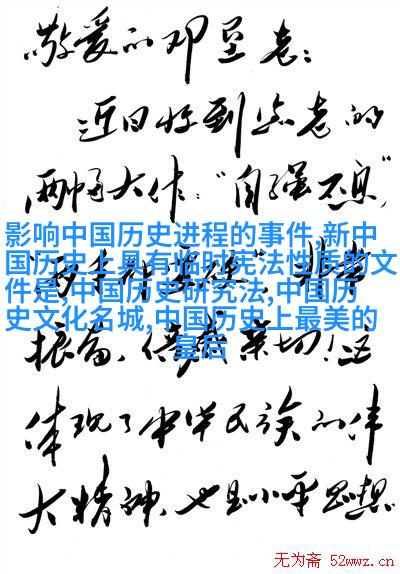 敬爱的邓垦老：
近日收到您老的
两幅大作："自强不息"
影响中国历史进程的事件,新中
国历史上具有临时宪法性质的文
件是,中国历史研究法,中国历
史文化名城,中国历史上最美的
皇后
振奋、倍感亲切！这
体现了中华民族的伟
大精神,也是小平思想
无为斋 52wwz.cn